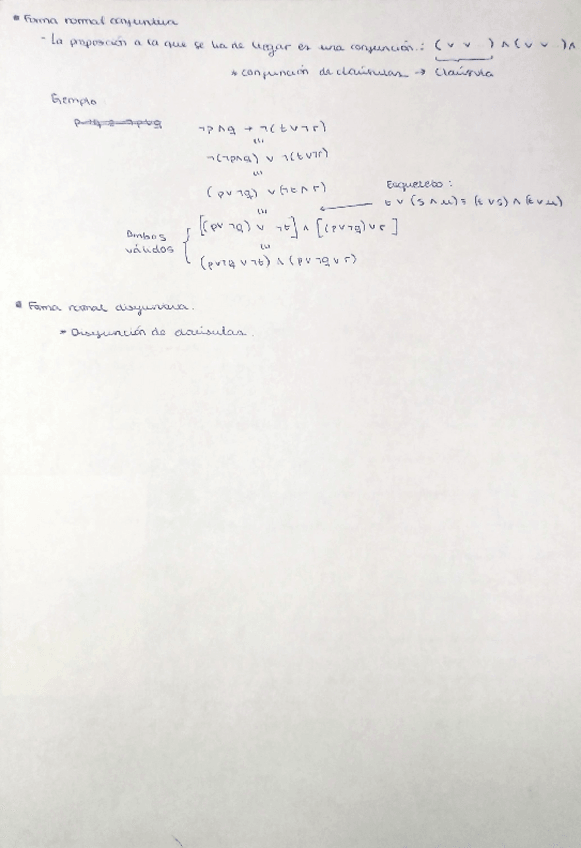 • Forma normal conjuntiva
- La proposición a la que se ha de llegar es una conjunción: ( ∨ ∨ ..) ∧ ( ∨ ∨ ..) ∧
* conjunción de cláusulas → Cláusula
Ejemplo
¬p∧q → ¬(t∨¬r)
≡
¬(¬p∧q) ∨ ¬(t∨¬r)
≡
(p∨¬q) ∨ (¬t∧r)
≡
Esquereto:
t ∨ (s∧u) ≡ (t∨s) ∧ (t∨u)
Ambos válidos
[(p∨¬q) ∨ ¬t] ∧ [(p∨¬q)∨r]
≡
(p∨¬q∨¬t) ∧ (p∨¬q∨r)
• Forma normal disyuntiva.
* Disyunción de cláusulas.